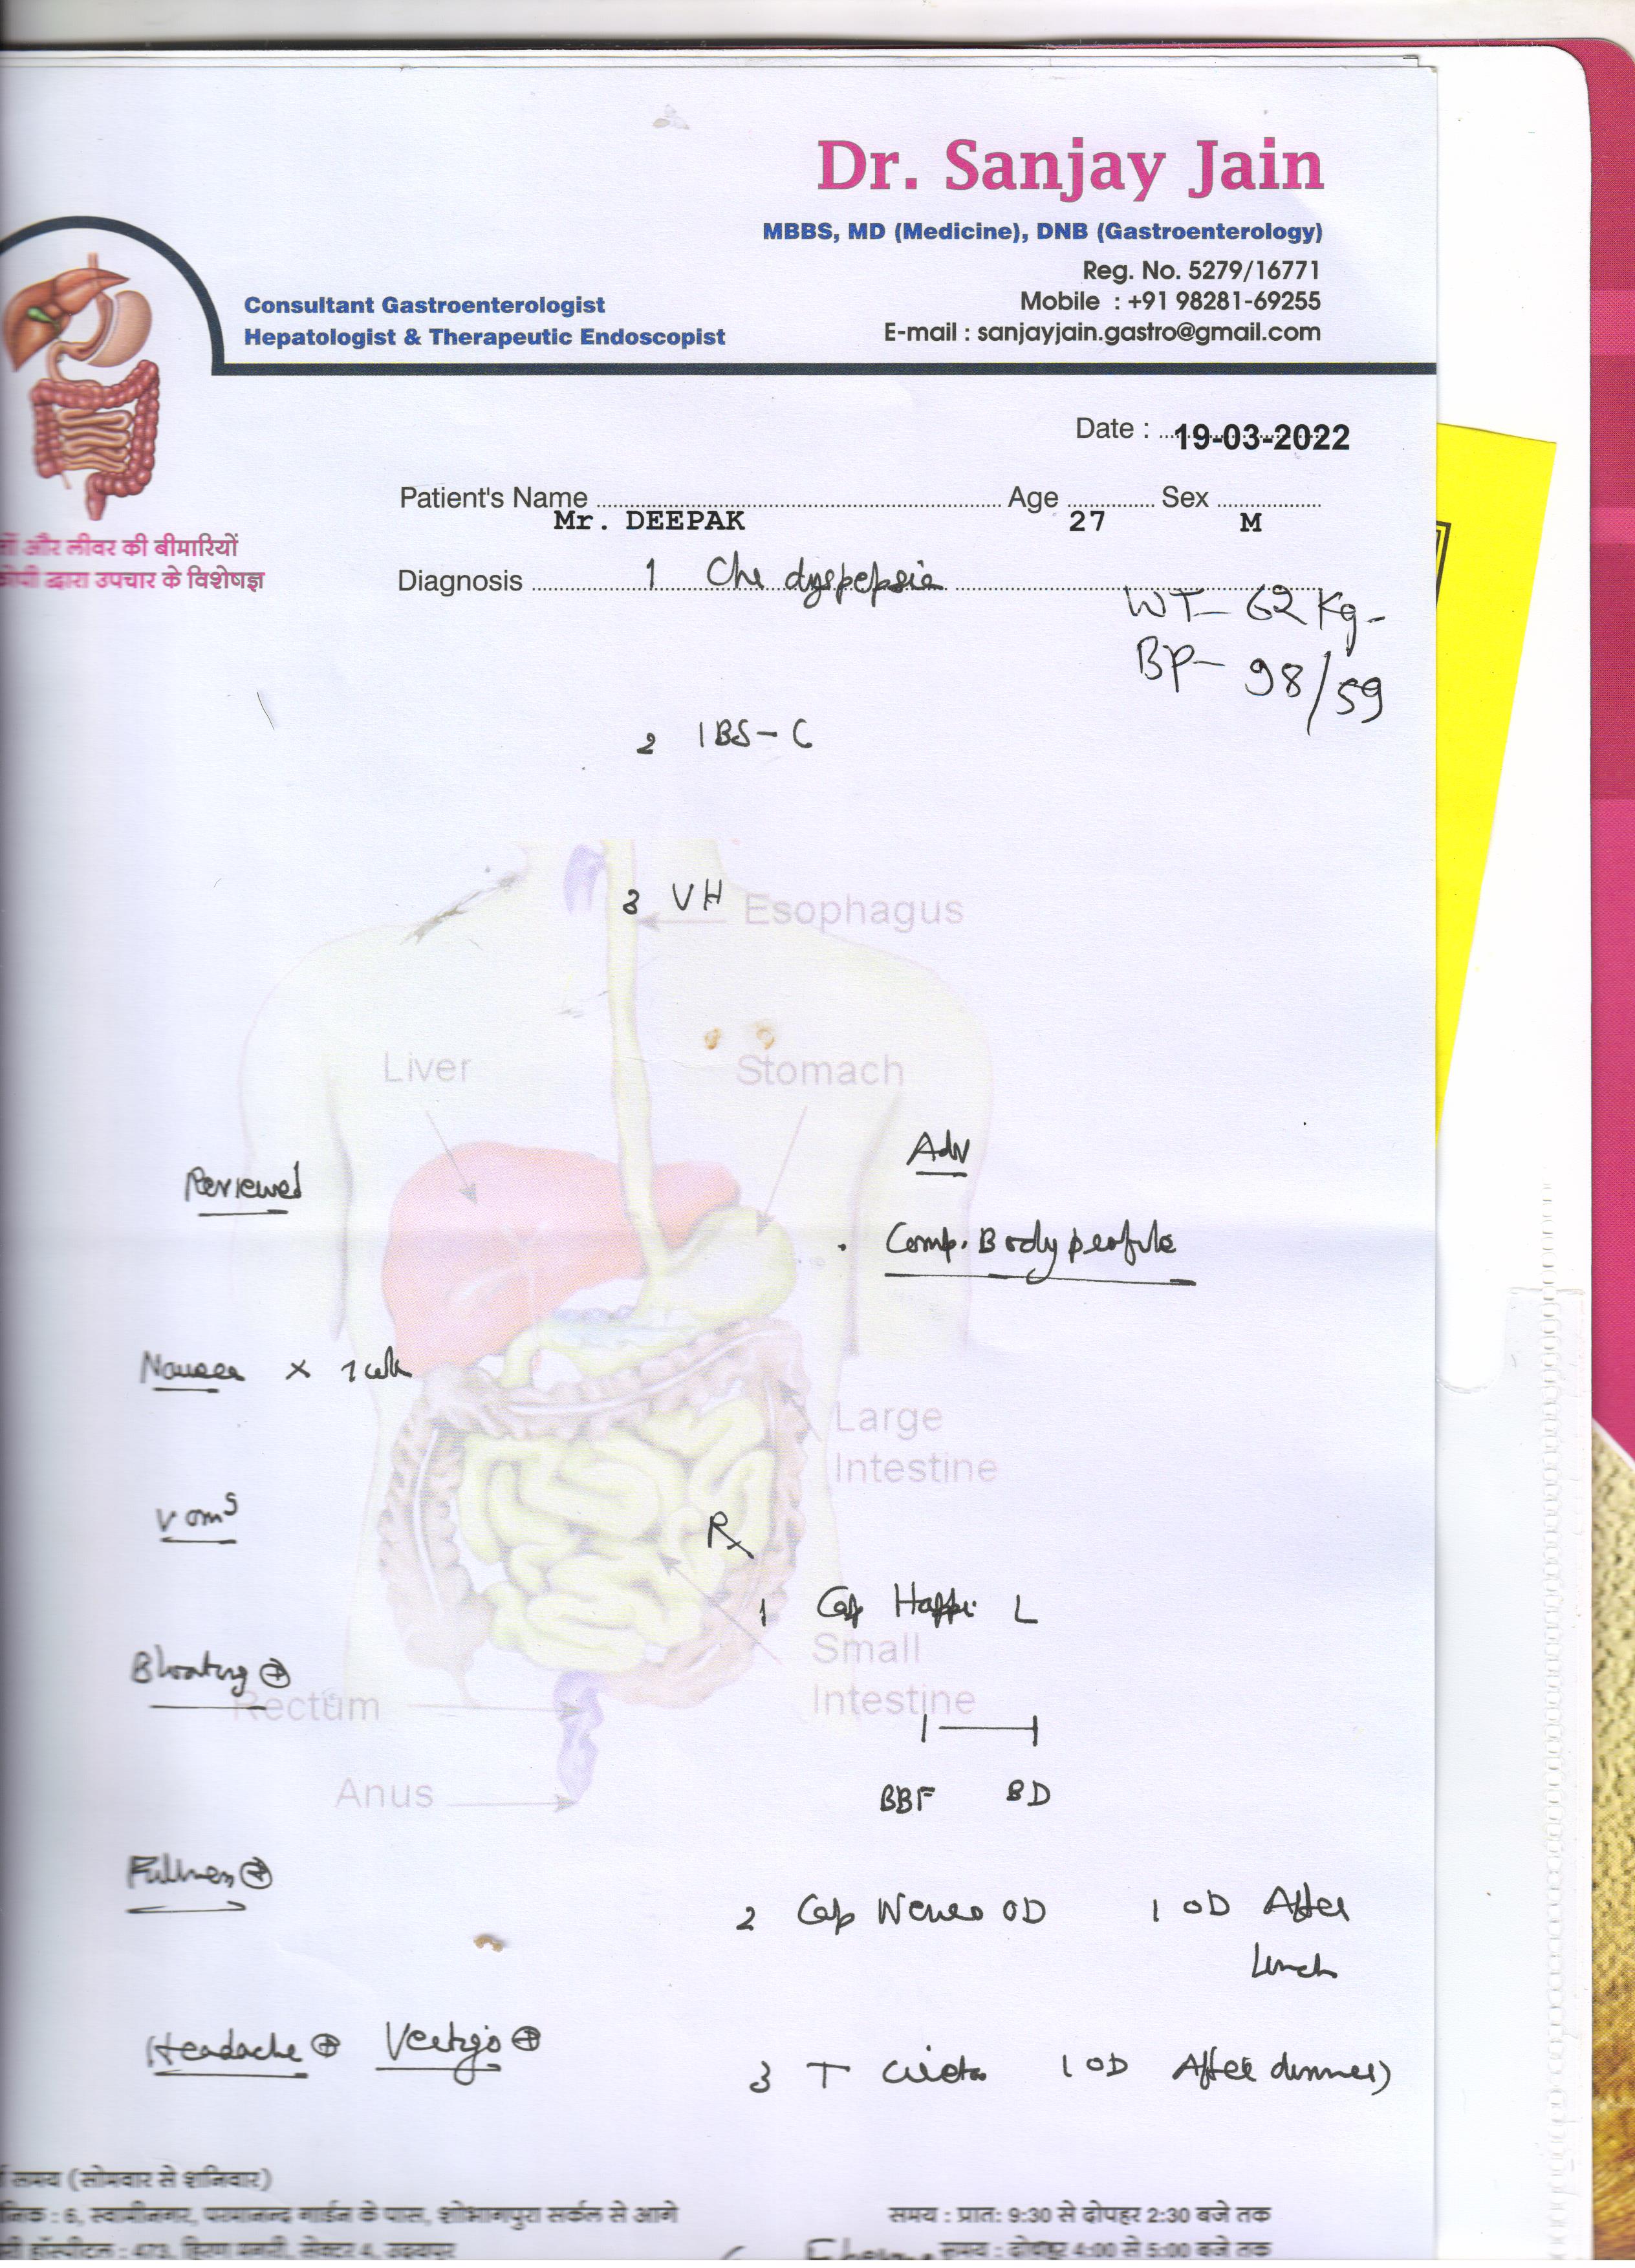 Dr. Sanjay Jain
MBBS, MD (Medicine), DNB (Gastroenterology)
Reg. No. 5279/16771
Mobile : +91 98281-69255
E-mail : sanjayjain.gastro@gmail.com
Consultant Gastroenterologist
Hepatologist & Therapeutic Endoscopist
और लीवर की बीमारियों
द्वारा उपचार के विशेषज्ञ
Date : 19-03-2022
Patient's Name Mr. DEEPAK Age 27 Sex M
Diagnosis 1 Chr dyspepsia
WT- 62 Kg-
BP- 98/59
2 IBS-C
3 VH
Esophagus
Liver
Stomach
Adv
Reviewed
Comp. Body profile
Nausea x 1 wk
Large
Intestine
Vom s
Rx
1 Cap Happi L
Small
Intestine
Bloating +
Rectum
BBF BD
Anus
Fullness +
2 Cap OD 1 OD After
lunch
Headache + Vertigo +
3 T 1 OD After dinner)
समय (सोमवार से शनिवार)
6, स्वामीनगर, परमानन्द गार्डन के पास, शोभागपुरा सर्कल से आगे
समय : प्रातः 9:30 से दोपहर 2:30 बजे तक
हॉस्पीटल : 473, हिरण मगरी, सेक्टर 4, उदयपुर
समय : दोपहर 4:00 से 5:00 बजे तक